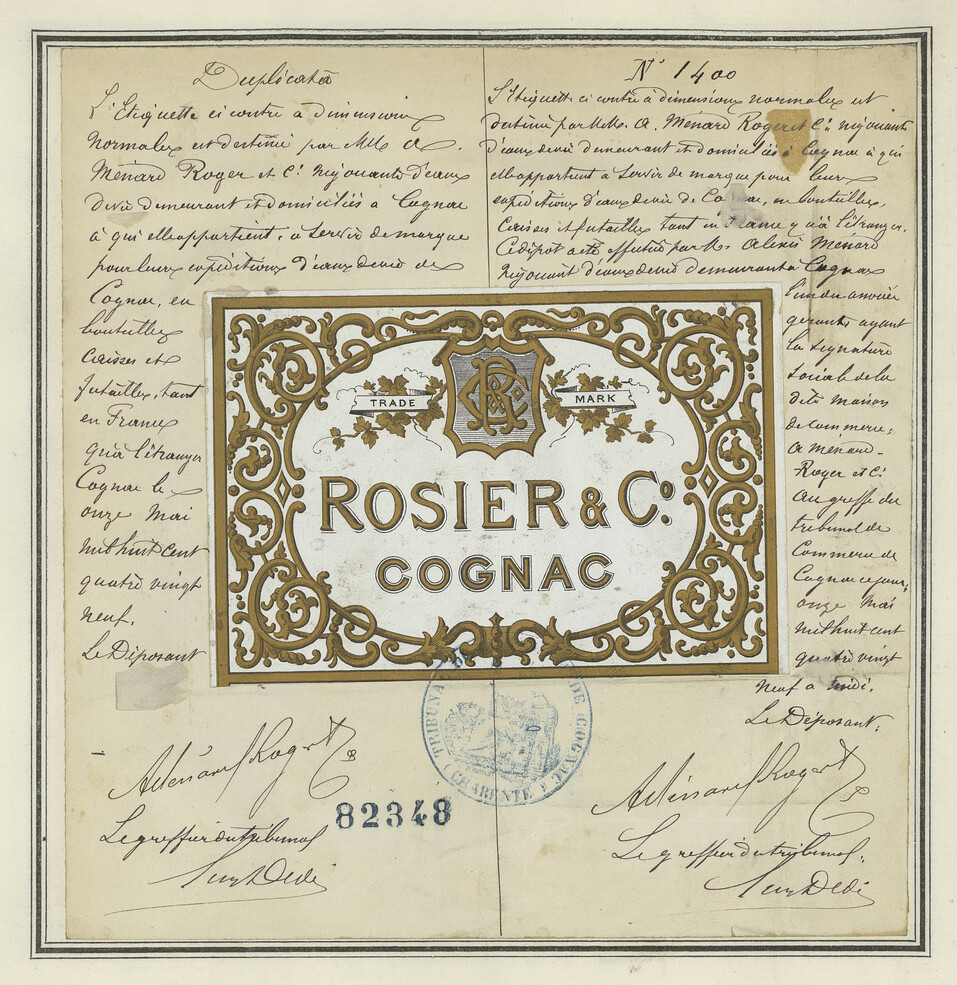 Duplicata
L'Etiquette ci contre à dimensions
normales est destinée par MM. A.
Ménard Roger et Cie Négociants d'eaux
de vie demeurant et domiciliés à Cognac
à qui elle appartient, à servir de marque
pour leurs expéditions d'eaux de vie de
Cognac, en
bouteilles
Caisses et
futailles, tant
en France
qu'à l'étranger
Cognac le
onze Mai
mil huit cent
quatre vingt
neuf.
Le Déposant
A Ménard Roger & Cie
Le greffier du tribunal
N° 1400
L'Etiquette ci contre à dimensions normales est
destinée par MM. A. Ménard Roger et Cie négociants
d'eaux de vie demeurant et domiciliés à Cognac à qui
elle appartient à servir de marque pour leurs
expéditions d'eaux de vie de Cognac, en bouteilles,
Caisses et futailles tant en France qu'à l'étranger.
Ce dépôt a été effectué par M. Alexis Ménard
Négociant d'eaux de vie demeurant à Cognac
l'un des associés
gérants ayant
la signature
sociale de la
dite maison
de commerce,
A Ménard-
Roger et Cie
Au greffe du
tribunal de
Commerce de
Cognac ce jour,
onze Mai
mil huit cent
quatre vingt
neuf à midi.
Le Déposant.
A Ménard Roger & Cie
Le greffier du tribunal.
TRADE MARK
RC
ROSIER & Co.
COGNAC
TRIBUNAL DE COGNAC
(CHARENTE)
82348